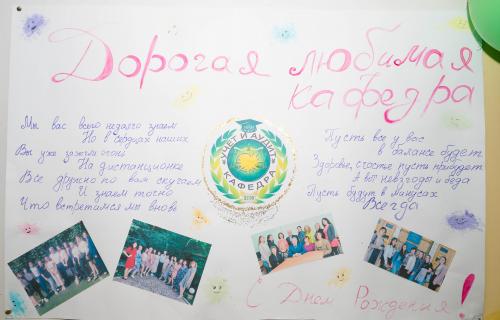 Дорогая любимая
кафедра
Мы вас всего недолго знаем
Но в сердцах наших
Вы уже зажгли огонь
На дистанционке
Все дружно по вам скучаем
И знаем точно
Что встретимся мы вновь
УЧЕТ И АУДИТ
КАФЕДРА
Пусть все у вас
в балансе будет
Здоровье, счастье пусть прибудет
А вот невзгоды и беда
Пусть будут в минусах
Всегда
С Днем Рождения!